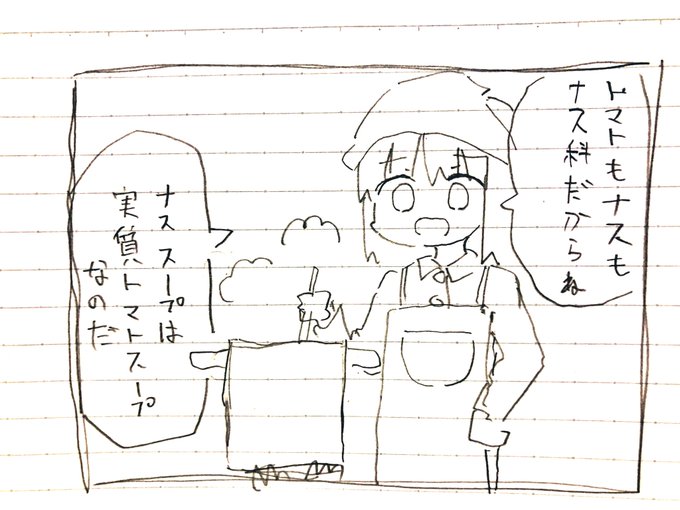 トマトもナスも
ナス科だからね
ナススープは
実質トマトスープ
なのだ